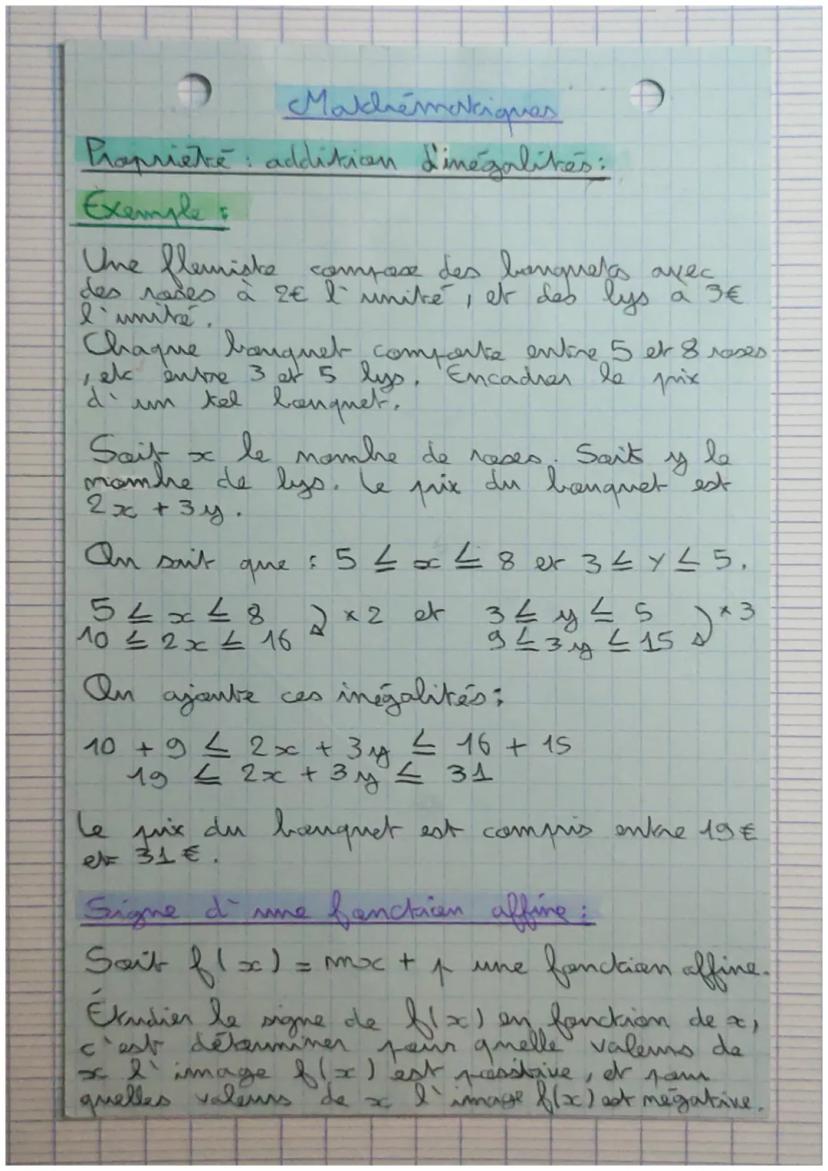 Mathématiques
Propriété : addition d'inégalités :
Exemple :
Une fleuriste compose des bouquets avec
des roses à 2€ l'unité, et des lys à 3€
l'unité.
Chaque bouquet comporte entre 5 et 8 roses
, et entre 3 et 5 lys. Encadrer le prix
d'un tel bouquet.
Soit x le nombre de roses. Soit y le
nombre de lys. Le prix du bouquet est
2x + 3y.
On sait que : 5 ≤ x ≤ 8 et 3 ≤ y ≤ 5.
5 ≤ x ≤ 8 ×2 et 3 ≤ y ≤ 5 ×3
10 ≤ 2x ≤ 16 9 ≤ 3y ≤ 15
On ajoute ces inégalités :
10 + 9 ≤ 2x + 3y ≤ 16 + 15
19 ≤ 2x + 3y ≤ 31
Le prix du bouquet est compris entre 19€
et 31€.
Signe d'une fonction affine :
Soit f(x) = mx + p une fonction affine.
Étudier le signe de f(x) en fonction de x,
c'est déterminer pour quelle valeurs de
x l'image f(x) est positive, et pour
quelles valeurs de x l'image f(x) est négative.